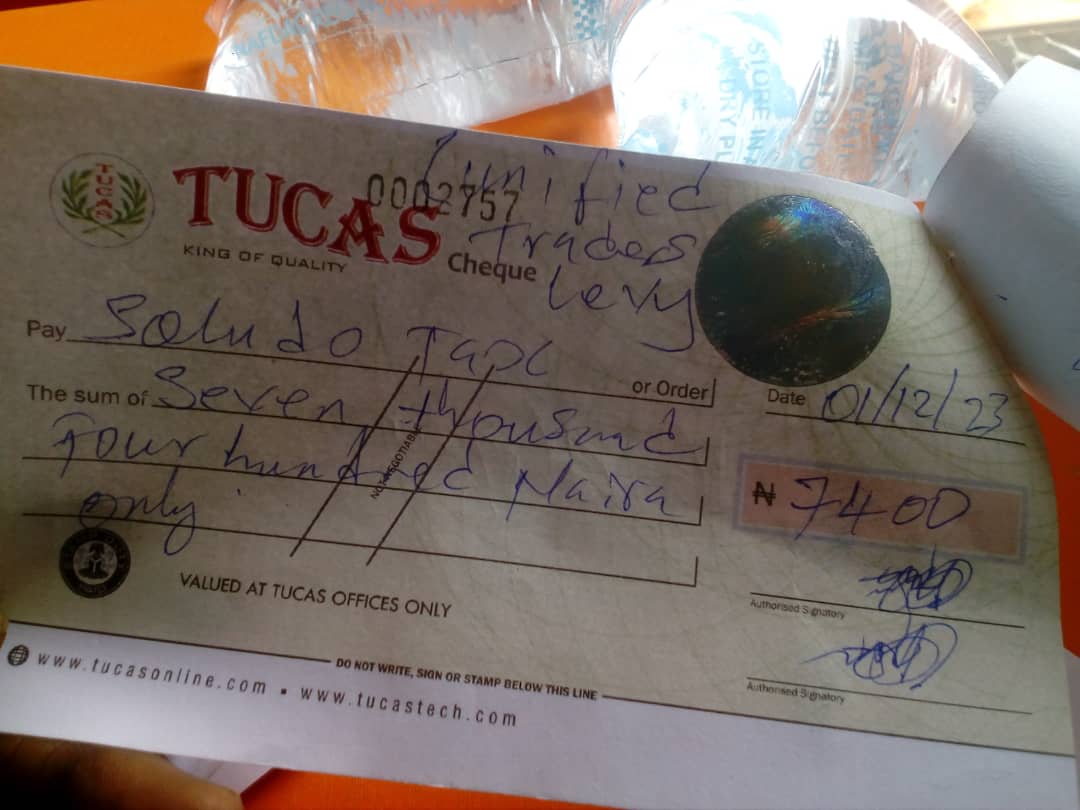 TUCAS
TUCAS
KING OF QUALITY
0002757
Cheque
Unified
Trades
Levy
Pay Soludo
or Order
Date 01/12/23
The sum of Seven thousand
Four hundred Naira
only.
NOT NEGOTIABLE
₦ 7400
Authorised Signatory
Authorised Signatory
VALUED AT TUCAS OFFICES ONLY
DO NOT WRITE, SIGN OR STAMP BELOW THIS LINE
www.tucasonline.com ▪ www.tucastech.com
STORE IN